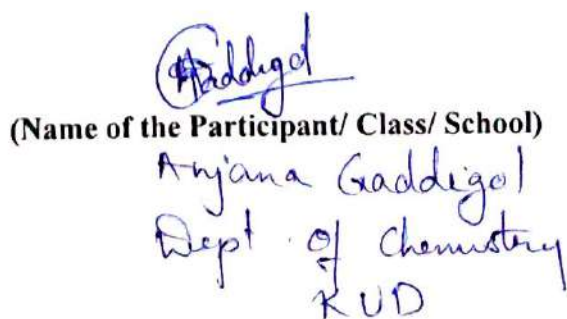 Gaddigol
(Name of the Participant/ Class/ School)
Anjana Gaddigol
Dept. of Chemistry
KUD